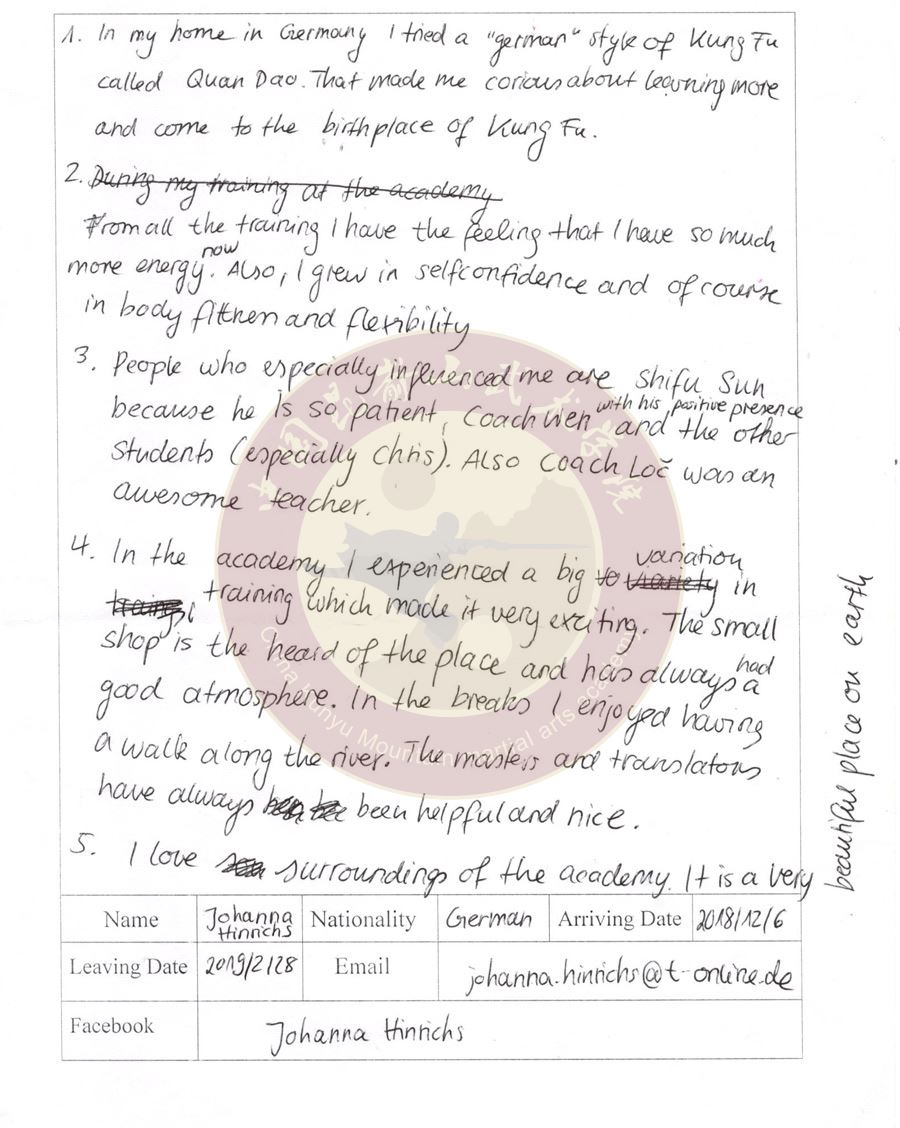 1. In my home in Germany I tried a "german" style of Kung Fu
called Quan Dao. That made me corious about learning more
and come to the birthplace of Kung Fu.
2. During my training at the academy
From all the training I have the feeling that I have so much
more energy now. Also, I grew in selfconfidence and of course
in body fittnen and flexibility
3. People who especially influenced me are Shifu Sun
because he is so patient, Coach Wen with his positive presence and the other
students (especially Chris). Also Coach Loč was an
awesome teacher.
4. In the academy I experienced a big to variety variation in
training training which made it very exciting. The small
shop is the heard of the place and has always had a
good atmosphere. In the breaks I enjoyed having
a walk along the river. The masters and translators
have always been helpful and nice.
5. I love surroundings of the academy. It is a very
beautiful place on earth
Name Johanna Hinrichs Nationality German Arriving Date 2018/12/6
Leaving Date 2019/2/28 Email johanna.hinrichs@t-online.de
Facebook Johanna Hinrichs
martial arts academy